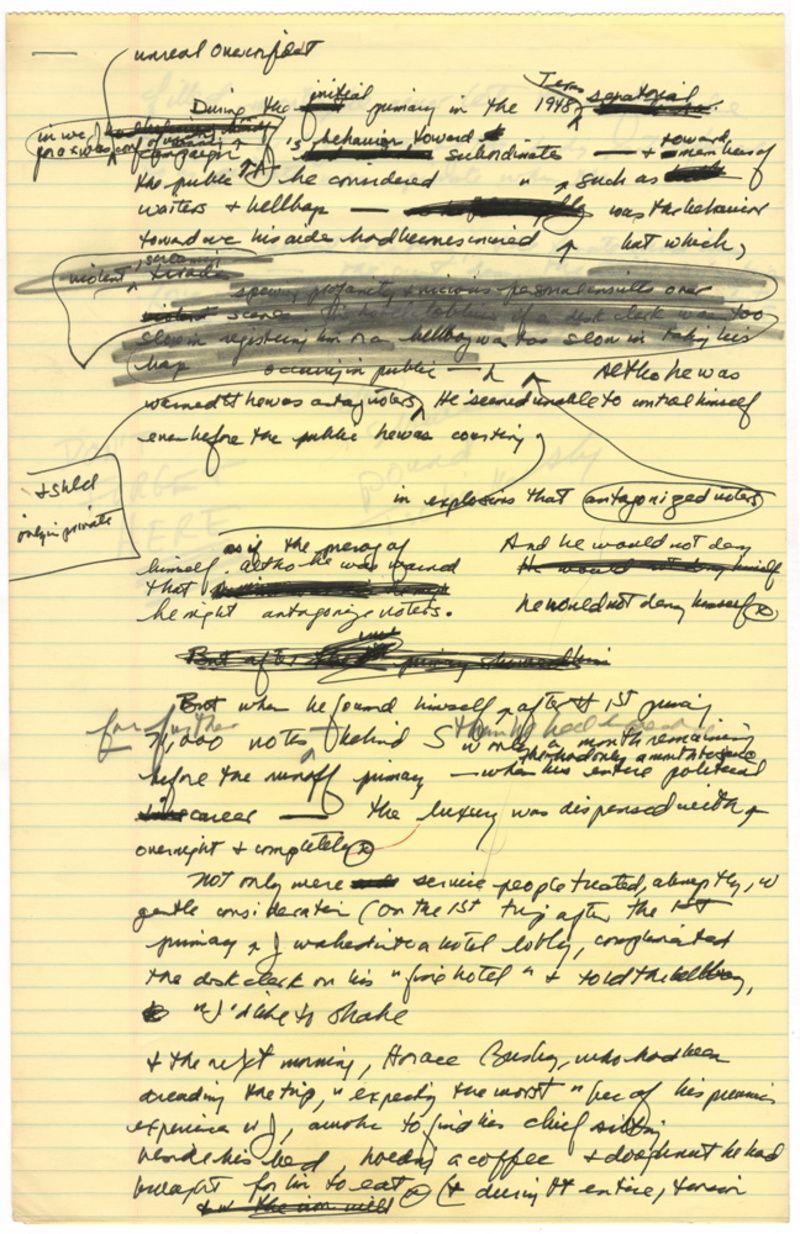 unreal overconfident
Texas
initial
During the primary in the 1948, senatorial
in we,
campaign 's behavior toward subordinates — + toward members of
the public he considered " , such as
waiters + bellhop — was the behavior
toward we his aide had becomes inured , but which,
violent, screaming tirades
spewing profanity + vicious personal insults over
violent scenes in hotel lobbies if a desk clerk was too
slow in registering him or a bellboy was too slow in taking his
bag occurring in public — Altho he was
warned tt he was antag voters, He seemed unable to control himself
even before the public he was courting,
+ shld
only in private
in explosions that antagonized voters
as if the prerog of And he would not deny
himself. altho he was warned He would not deny himself
that
he might antagonize voters. he would not deny himself
But after primary showed him
But when he found himself, after tt 1st primary
far further
71,000 votes behind S w only a month remaining
he had only a month to go
before the runoff primary — when his entire political
career — the luxury was dispensed with,
overnight + completely
Not only were service people treated, abruptly, w
gentle consideration (On the 1st trip after the 1st
primary, J walked into a hotel lobby, complimented
the desk clerk on his "fine hotel" + told the bellboy,
"I'd like to shake
+ the next morning, Horace Busby, who had been
dreading the trip, "expecting the worst" bec of his previous
experience w J, awoke to find his chief sitting
beside his bed, holding a coffee + doughnut he had
brought for him to eat (+ during tt entire, tension
the iron will